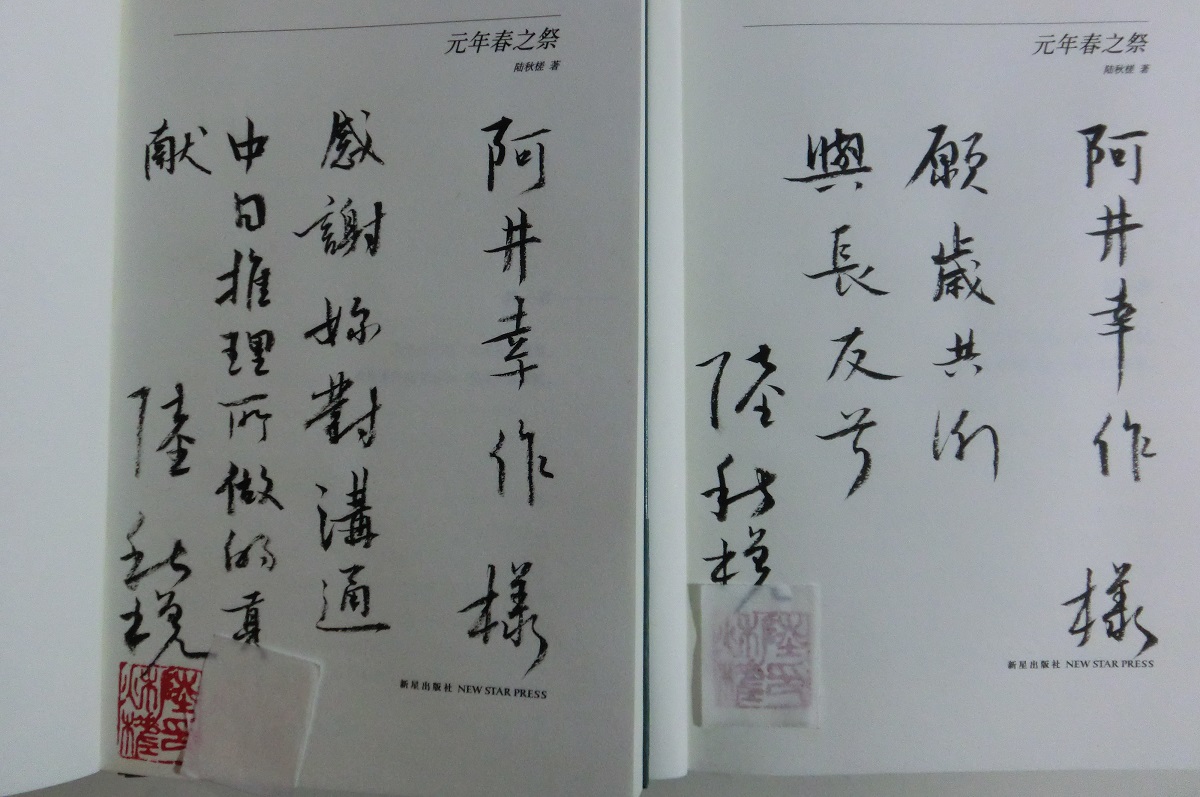 元年春之祭
陆秋槎 著
阿井幸作 様
感謝妳對溝通
中日推理所做的貢
献
陸秋槎
新星出版社 NEW STAR PRESS
元年春之祭
陆秋槎 著
阿井幸作 様
願歲并謝
與長友兮
陸秋槎
新星出版社 NEW STAR PRESS